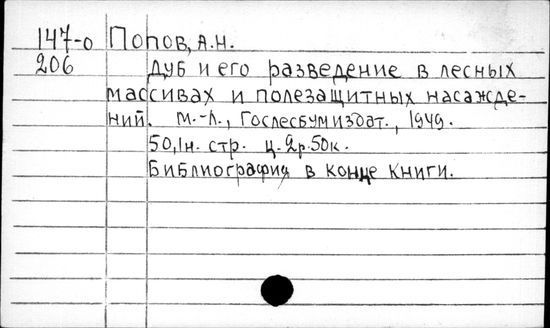 147-о Попов, А.Н.
206 Дуб и его разведение в лесных
массивах и полезащитных насажде-
ний. М.-Л., Гослесбумиздат., 1949.
50,1н. стр. ц. 2р.50к.
Библиография в конце книги.